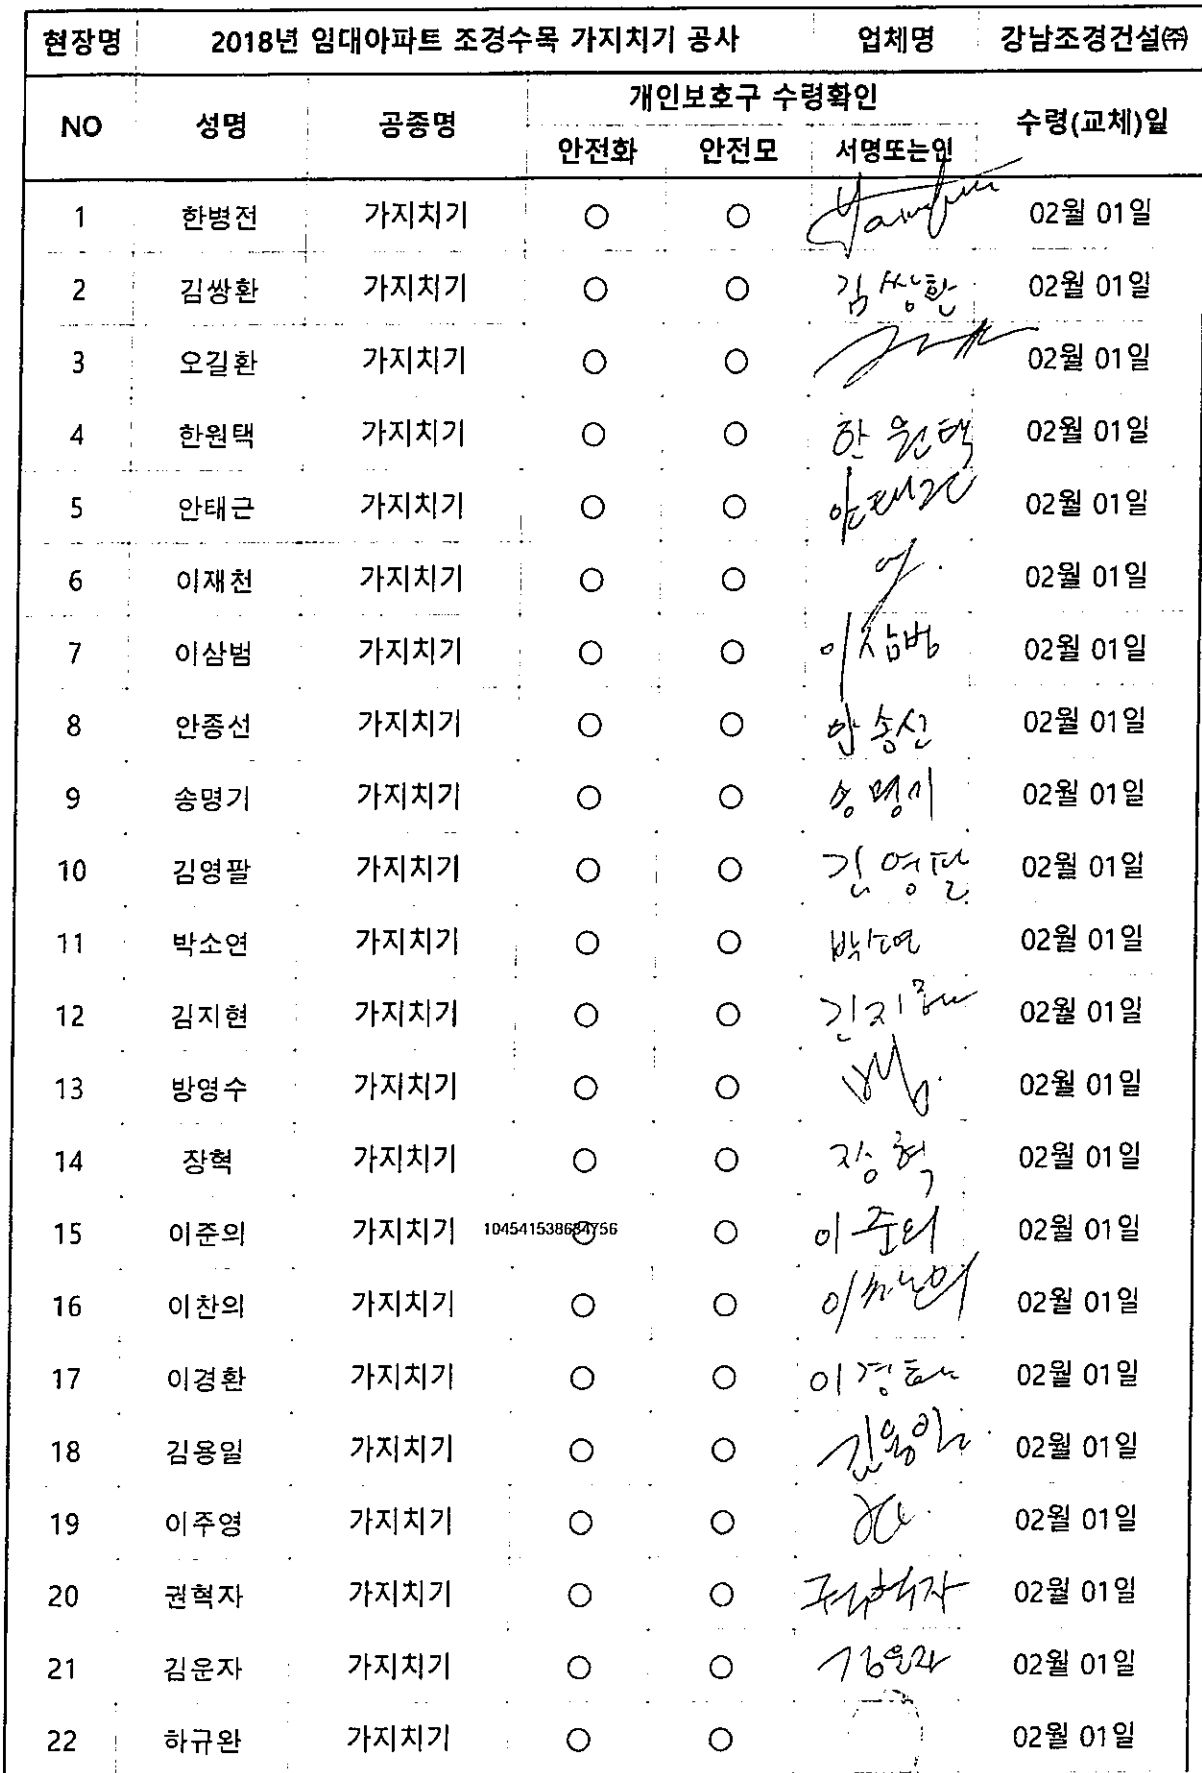 현장명 2018년 임대아파트 조경수목 가지치기 공사 업체명 강남조경건설㈜
NO 성명 공종명 개인보호구 수령확인 수령(교체)일
안전화 안전모 서명또는인
1 한병전 가지치기 ○ ○ 02월 01일
2 김쌍환 가지치기 ○ ○ 김쌍환 02월 01일
3 오길환 가지치기 ○ ○ 02월 01일
4 한원택 가지치기 ○ ○ 한원택 02월 01일
5 안태근 가지치기 ○ ○ 안태근 02월 01일
6 이재천 가지치기 ○ ○ 02월 01일
7 이삼범 가지치기 ○ ○ 이삼범 02월 01일
8 안종선 가지치기 ○ ○ 02월 01일
9 송명기 가지치기 ○ ○ 송명기 02월 01일
10 김영팔 가지치기 ○ ○ 김영팔 02월 01일
11 박소연 가지치기 ○ ○ 박소연 02월 01일
12 김지현 가지치기 ○ ○ 김지현 02월 01일
13 방영수 가지치기 ○ ○ 02월 01일
14 장혁 가지치기 ○ ○ 장혁 02월 01일
15 이준의 가지치기 104541538684756 ○ ○ 이준의 02월 01일
16 이찬의 가지치기 ○ ○ 이찬의 02월 01일
17 이경환 가지치기 ○ ○ 이경환 02월 01일
18 김용일 가지치기 ○ ○ 김용일 02월 01일
19 이주영 가지치기 ○ ○ 02월 01일
20 권혁자 가지치기 ○ ○ 권혁자 02월 01일
21 김운자 가지치기 ○ ○ 김운자 02월 01일
22 하규완 가지치기 ○ ○ 02월 01일